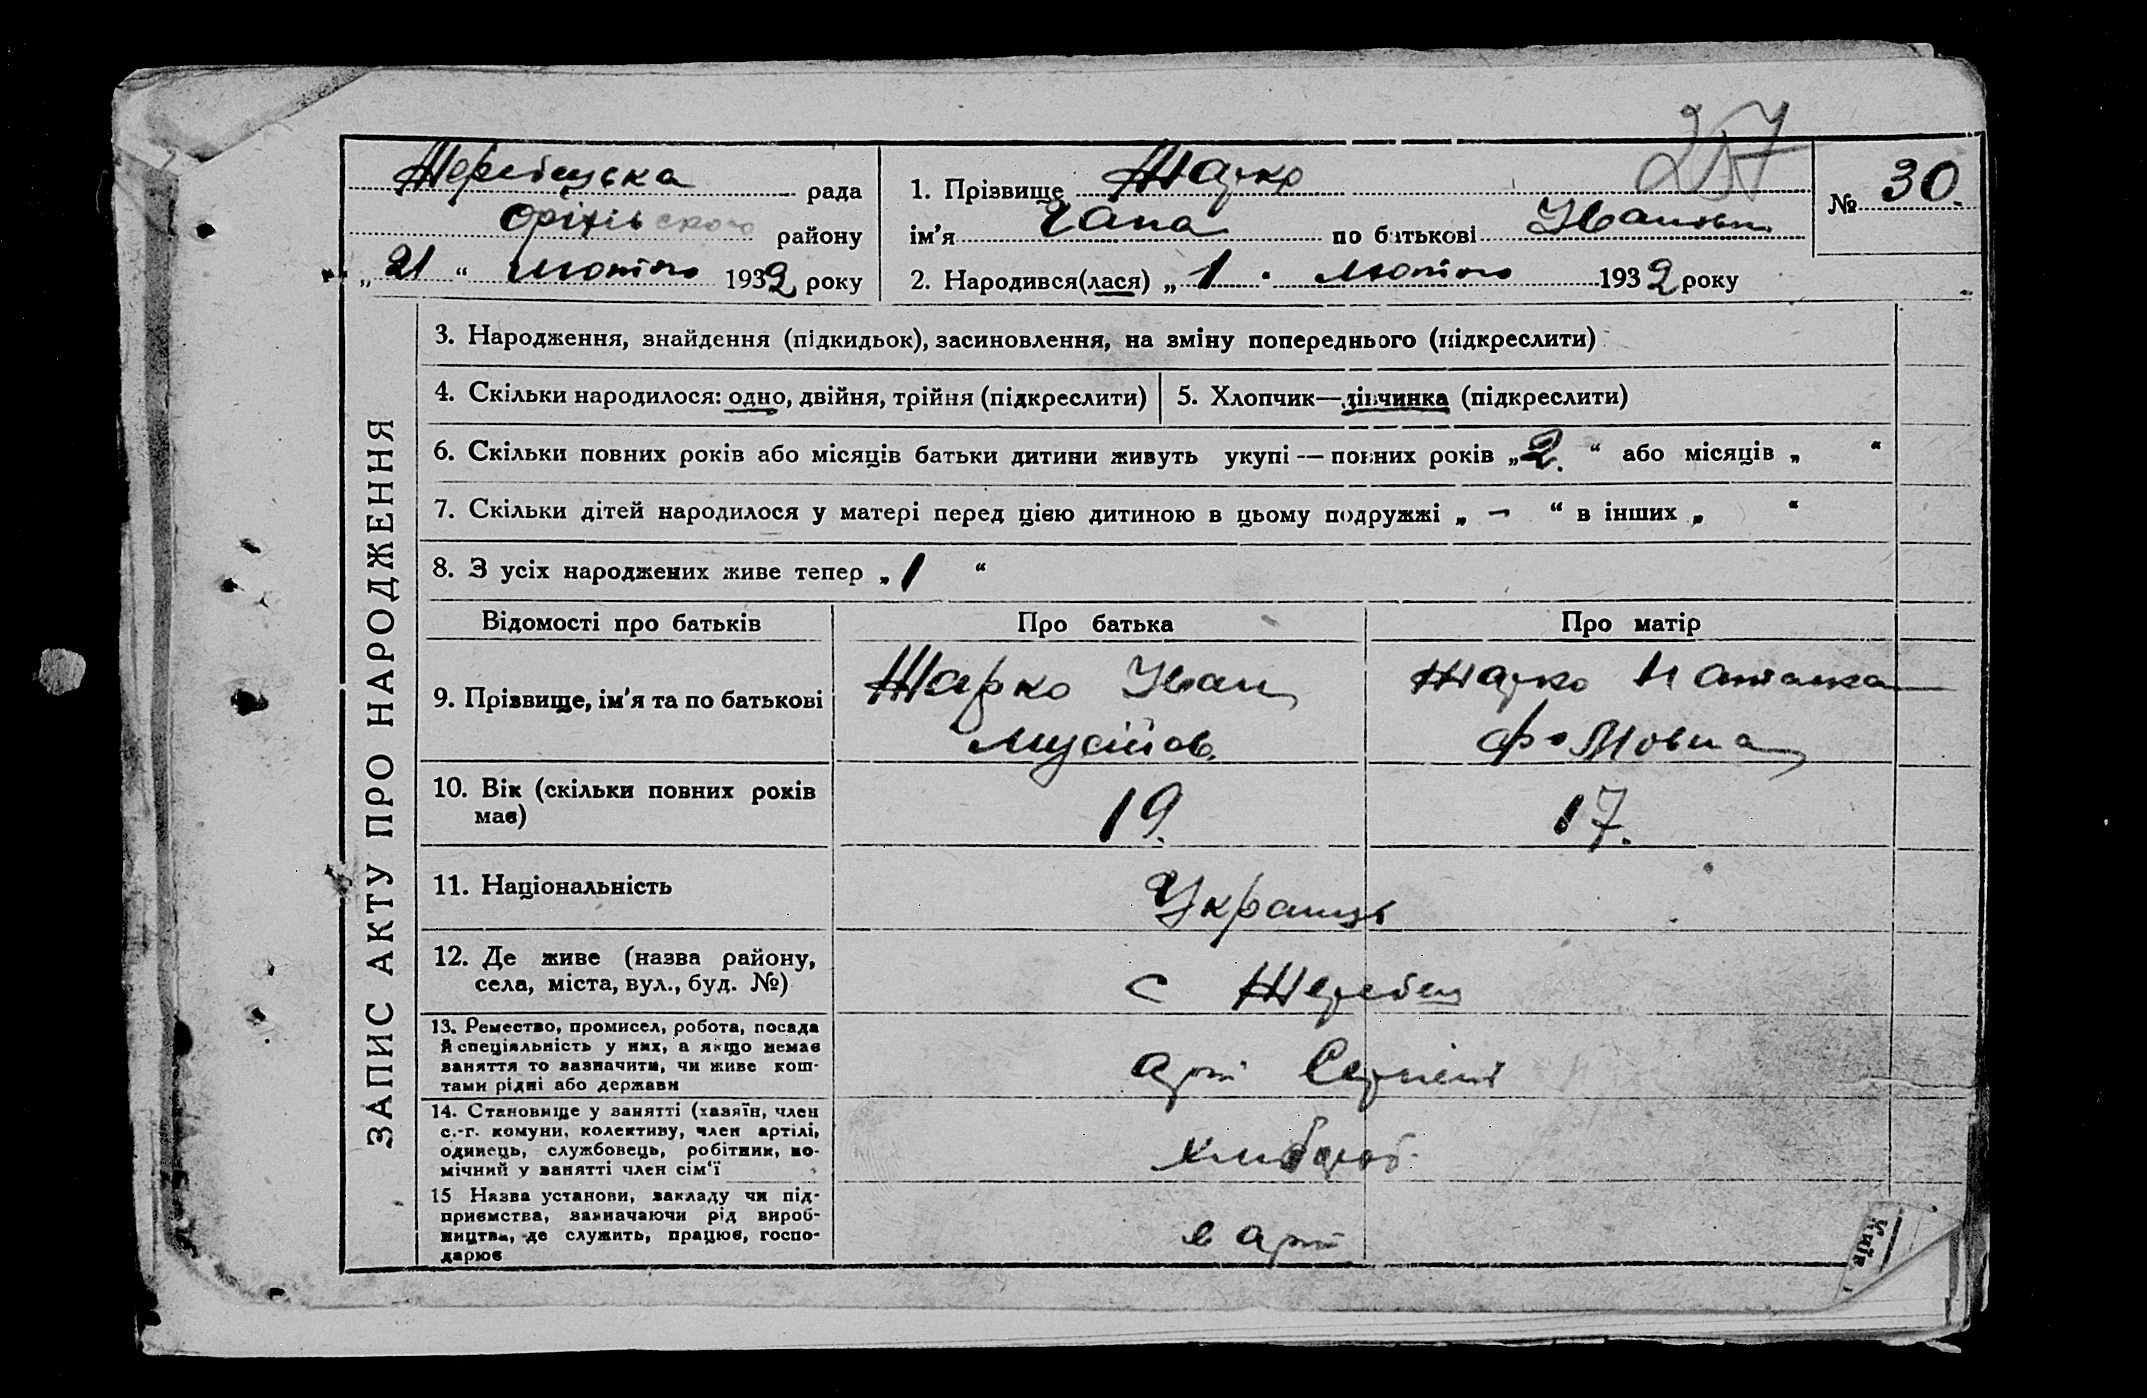 257
Жеребецька рада
Оріхівського району
„ 21 “ лютого 1932 року
1. Прізвище Жарко
ім'я Гапа по батькові Івановн
2. Народився(лася) „ 1 “ лютого 1932 року
№ 30.
ЗАПИС АКТУ ПРО НАРОДЖЕННЯ
3. Народження, знайдення (підкидьок), засиновлення, на зміну попереднього (підкреслити)
4. Скільки народилося: одно, двійня, трійня (підкреслити)
5. Хлопчик—дівчинка (підкреслити)
6. Скільки повних років або місяців батьки дитини живуть укупі — повних років „ 2. “ або місяців „ “
7. Скільки дітей народилося у матері перед цією дитиною в цьому подружжі „ - “ в інших „ “
8. З усіх народжених живе тепер „ 1 “
Відомості про батьків Про батька Про матір
9. Прізвище, ім'я та по батькові
Жарко Іван
Мусійов.
Жарко Наталка
Фомовна
10. Вік (скільки повних років
має)
19.
17.
11. Національність
Українць
12. Де живе (назва району,
села, міста, вул., буд. №)
с Жеребец
13. Ремество, промисел, робота, посада
й спеціяльність у них, а якщо немає
заняття то зазначити, чи живе кош-
тами рідні або держави
арт
14. Становище у занятті (хазяїн, член
с.-г. комуни, колективу, член артілі,
одинець, службовець, робітник, по-
мічний у занятті член сім'ї
хлибороб.
15 Назва установи, закладу чи під-
приємства, зазначаючи рід вироб-
ництва, де служить, працює, госпо-
дарює
в арт
Київ